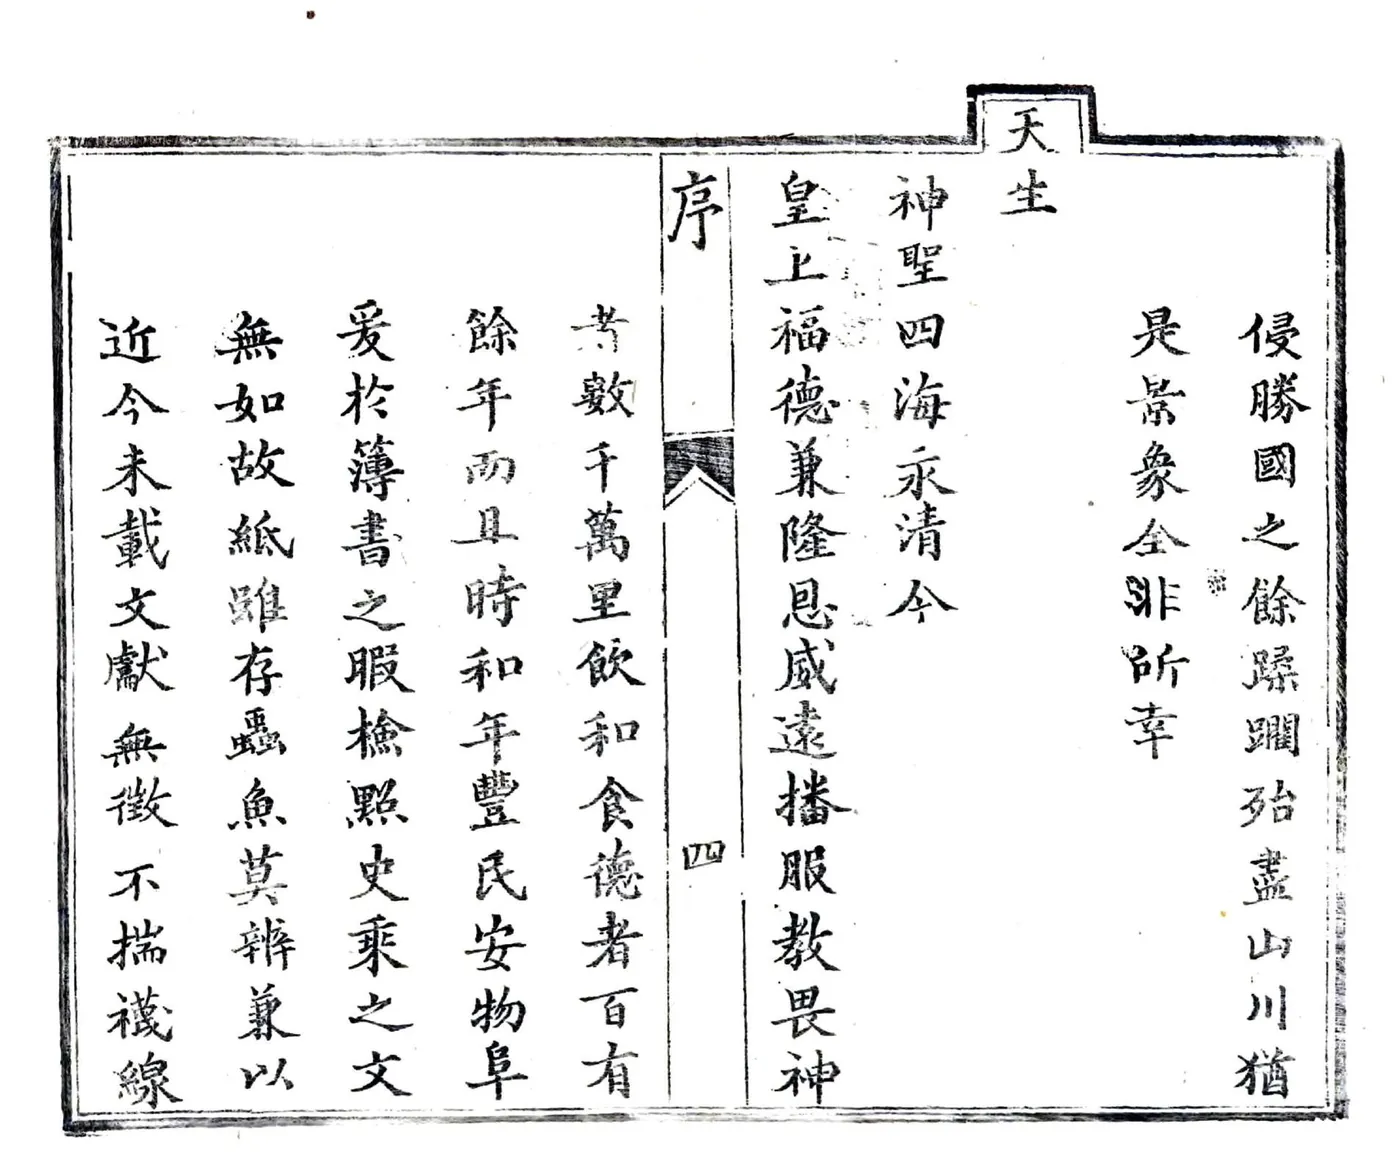 侵勝國之餘蹂躪殆盡山川猶
是景象全非所幸
天生
神聖四海永清今
皇上福德兼隆恩威遠播服教畏神
序
四
者數千萬里飲和食德者百有
餘年而且時和年豐民安物阜
爰於簿書之暇檢點史乘之文
無如故紙雖存蟲魚莫辨兼以
近今未載文獻無徵不揣襪線